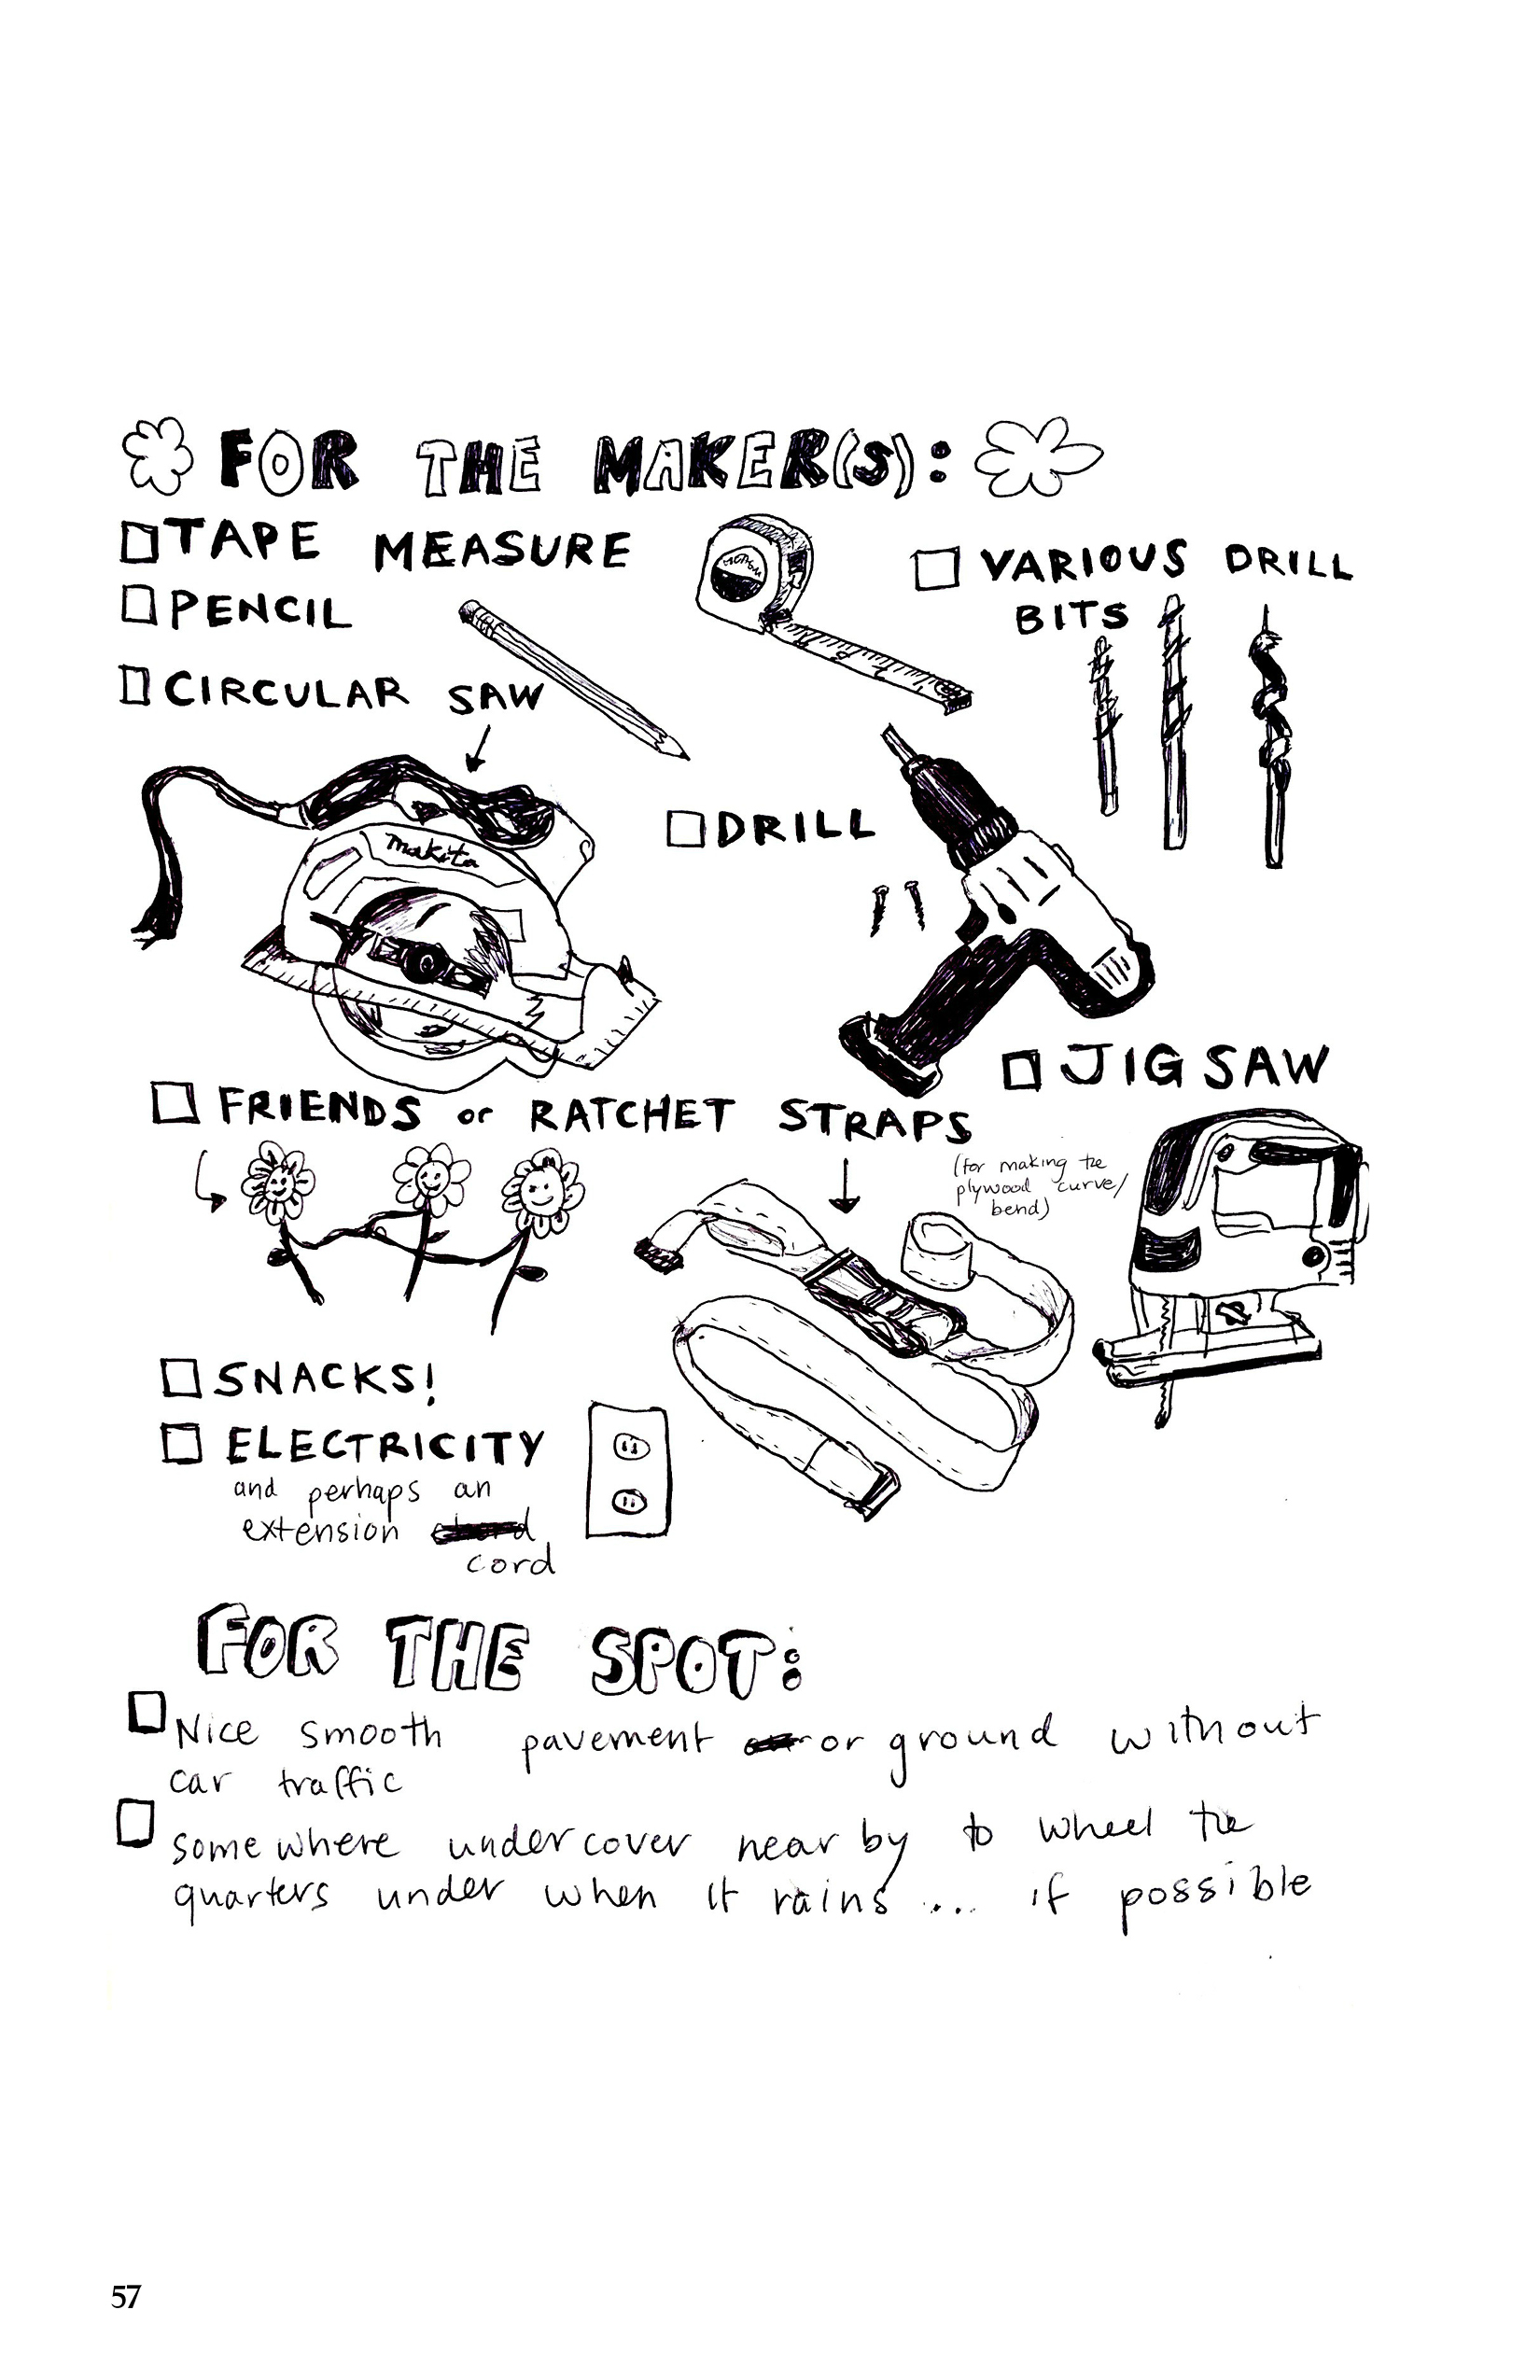 FOR THE MAKER(S):
TAPE MEASURE
PENCIL
CIRCULAR SAW
makita
VARIOUS DRILL
BITS
DRILL
JIGSAW
FRIENDS or RATCHET STRAPS
(for making the
plywood curve/
bend)
SNACKS!
ELECTRICITY
and perhaps an
extension
cord
FOR THE SPOT:
Nice smooth pavement or ground without
car traffic
somewhere undercover near by to wheel the
quarters under when it rains ... if possible
57